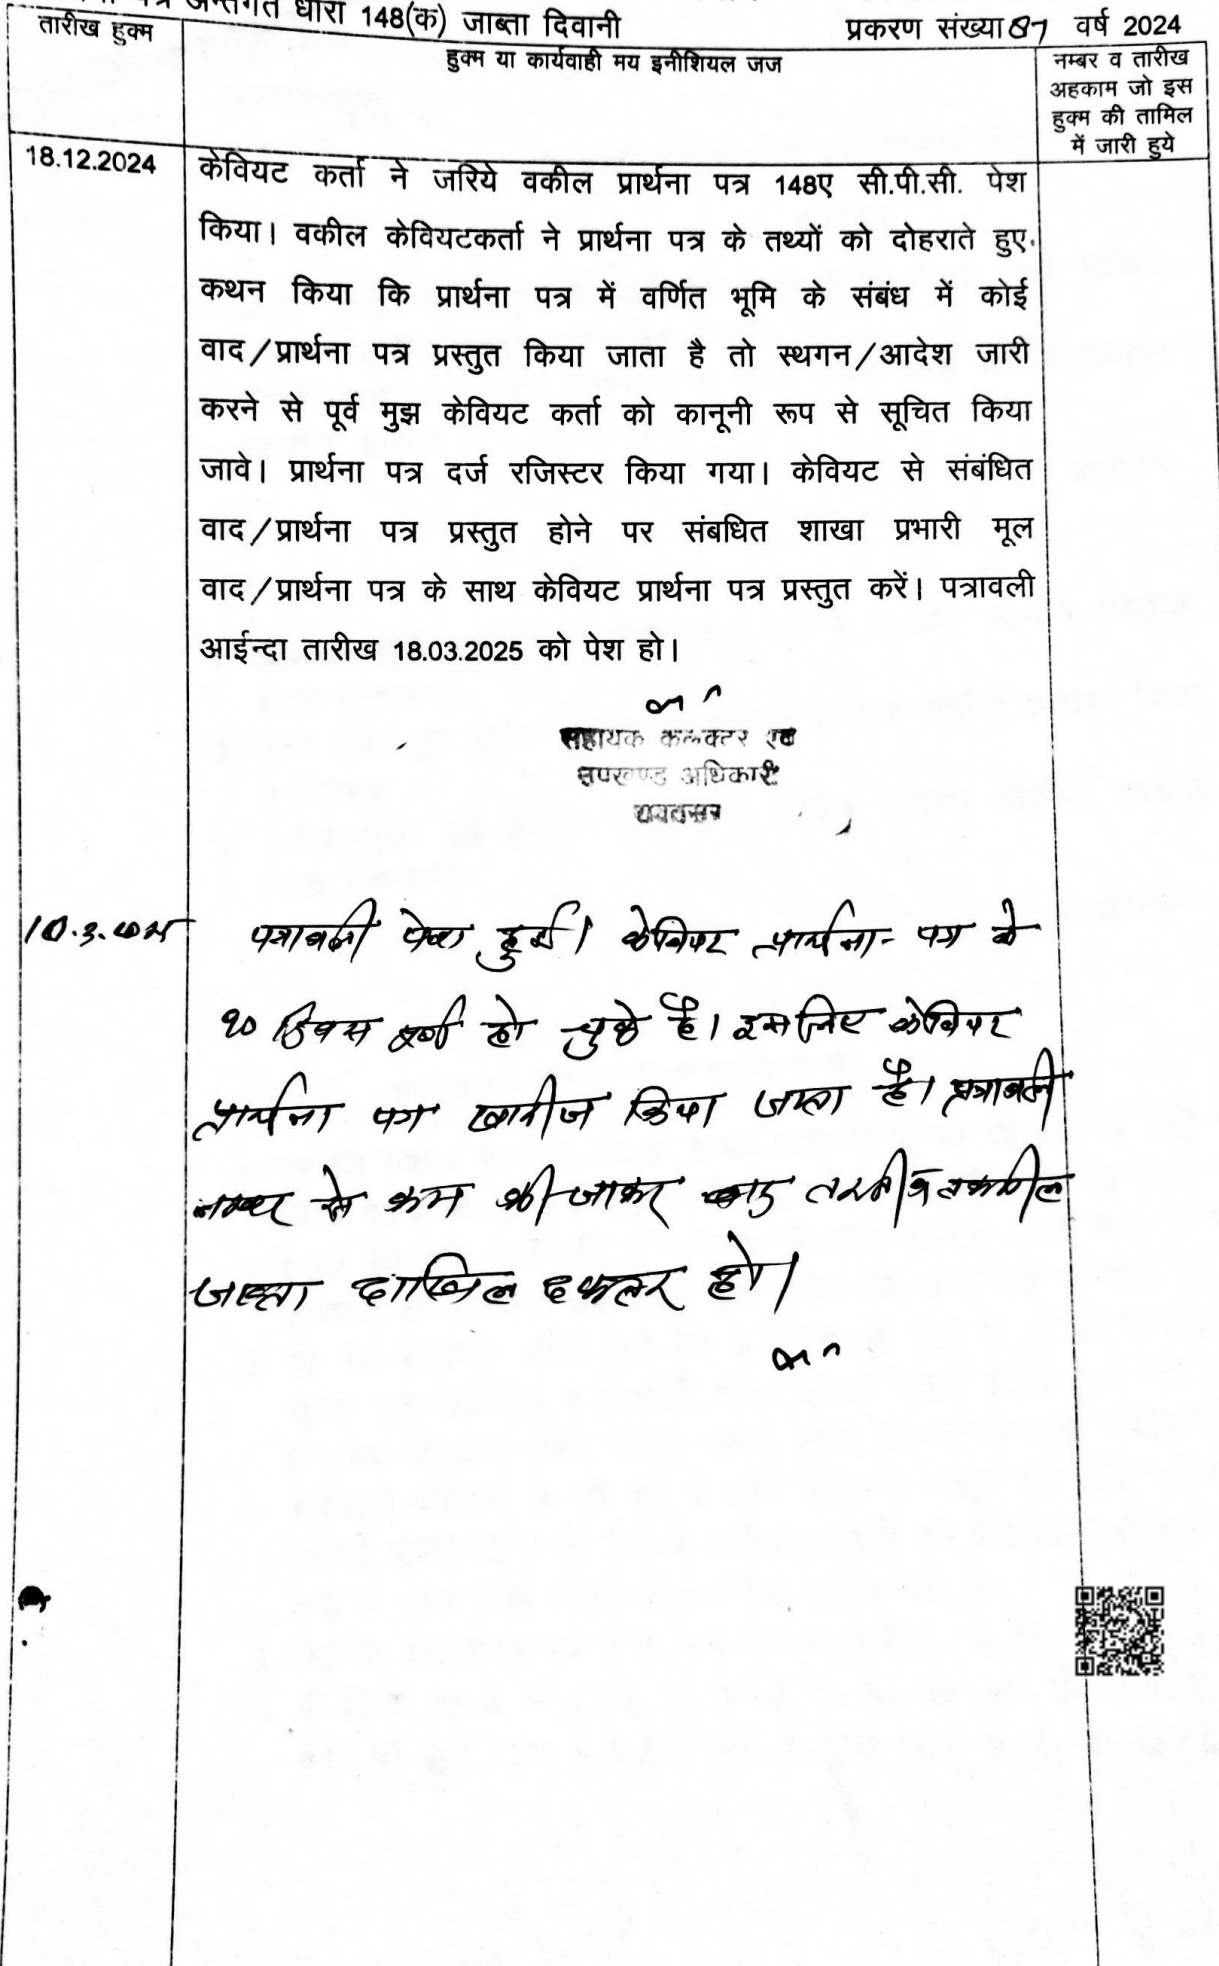 अन्तर्गत धारा 148(क) जाब्ता दिवानी प्रकरण संख्या 87 वर्ष 2024
तारीख हुक्म
हुक्म या कार्यवाही मय इनीशियल जज
नम्बर व तारीख
अहकाम जो इस
हुक्म की तामिल
में जारी हुये
18.12.2024
केवियट कर्ता ने जरिये वकील प्रार्थना पत्र 148ए सी.पी.सी. पेश
किया। वकील केवियटकर्ता ने प्रार्थना पत्र के तथ्यों को दोहराते हुए
कथन किया कि प्रार्थना पत्र में वर्णित भूमि के संबंध में कोई
वाद/प्रार्थना पत्र प्रस्तुत किया जाता है तो स्थगन/आदेश जारी
करने से पूर्व मुझ केवियट कर्ता को कानूनी रूप से सूचित किया
जावे। प्रार्थना पत्र दर्ज रजिस्टर किया गया। केवियट से संबंधित
वाद/प्रार्थना पत्र प्रस्तुत होने पर संबधित शाखा प्रभारी मूल
वाद/प्रार्थना पत्र के साथ केवियट प्रार्थना पत्र प्रस्तुत करें। पत्रावली
आईन्दा तारीख 18.03.2025 को पेश हो।
सहायक कलक्टर एवं
उपखण्ड अधिकारी
पत्रावली पेश हुई। केवियट प्रार्थना-पत्र के
90 दिवस पूर्ण हो चुके है। इसलिए केवियट
प्रार्थना पत्र खारीज किया जाता है। पत्रावली
नम्बर से कम की जाकर बाद तरतीब व तकमील
जाब्ता दाखिल दफ्तर हो।